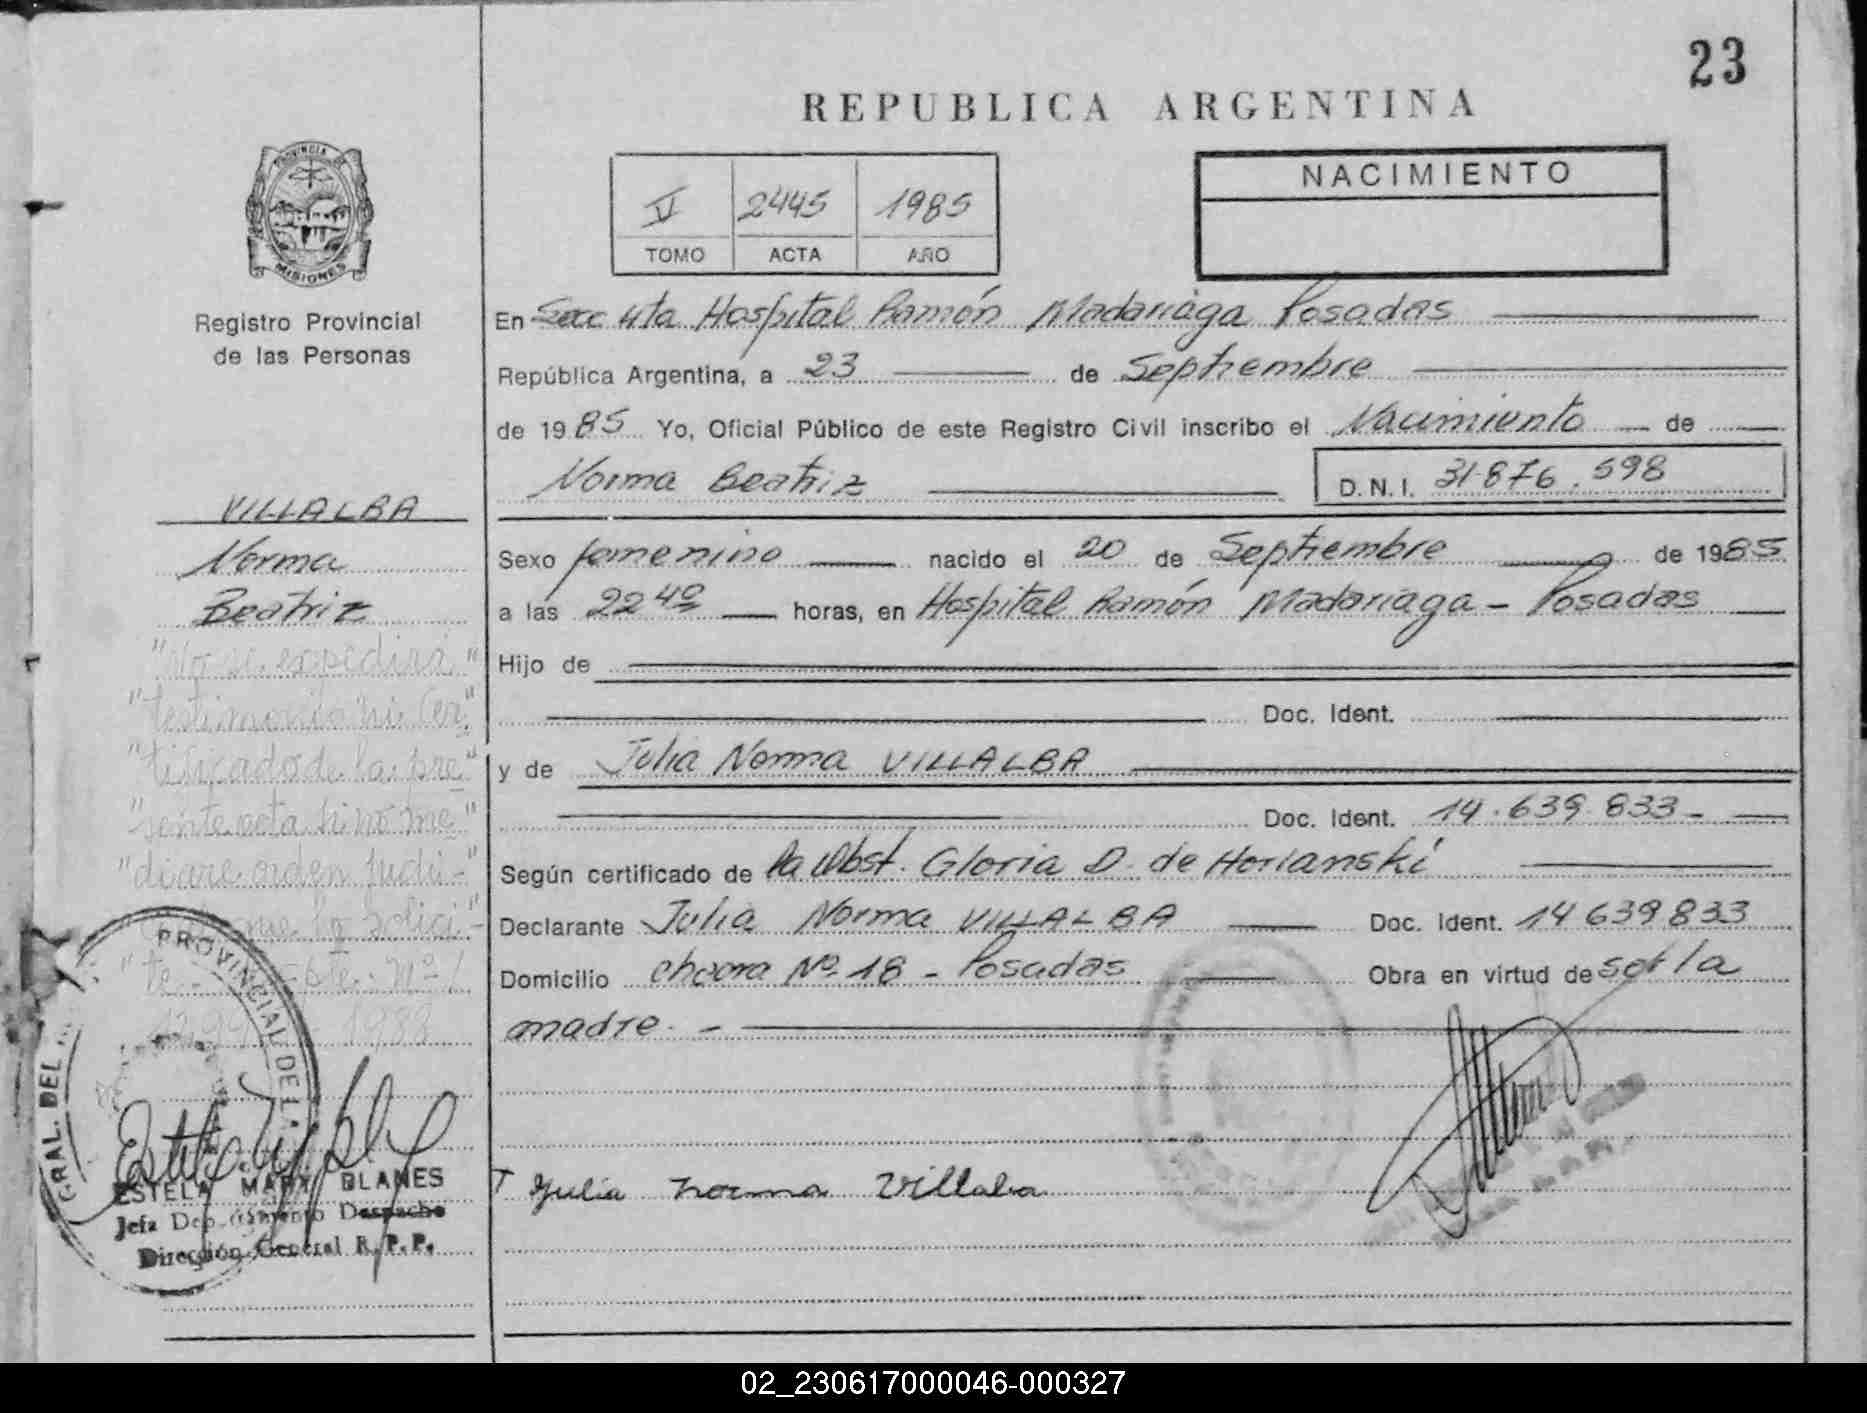 23
REPUBLICA ARGENTINA
PROVINCIA DE
MISIONES
V 2445 1985
TOMO ACTA AÑO
NACIMIENTO
Registro Provincial
de las Personas
En Secc 4ta Hospital Ramón Madariaga Posadas
República Argentina, a 23 de Septiembre
de 1985 Yo, Oficial Público de este Registro Civil inscribo el Nacimiento de
Norma Beatriz D.N.I. 31.876.598
VILLALBA
Norma
Beatriz
"No se expedirá"
"testimonio ni Cer"
"tificado de la pre"
"sente acta si no me"
"diare orden judi-"
que lo solici-"
"te. Nº
1988
Sexo femenino nacido el 20 de Septiembre de 1985
a las 22 40 horas, en Hospital Ramón Madariaga - Posadas
Hijo de
Doc. Ident.
y de Julia Norma VILLALBA
Doc. Ident. 14.639.833-
Según certificado de la Obst. Gloria D. de Horianski
Declarante Julia Norma VILLALBA Doc. Ident. 14639833
Domicilio chacra Nº 18 - Posadas Obra en virtud de ser la
madre. -
Julia norma Villalba
GRAL. DEL PROVINCIAL DE LA
ESTELA MARY BLANES
Jefa Departamento Despacho
Dirección General R.P.P.
02_230617000046-000327